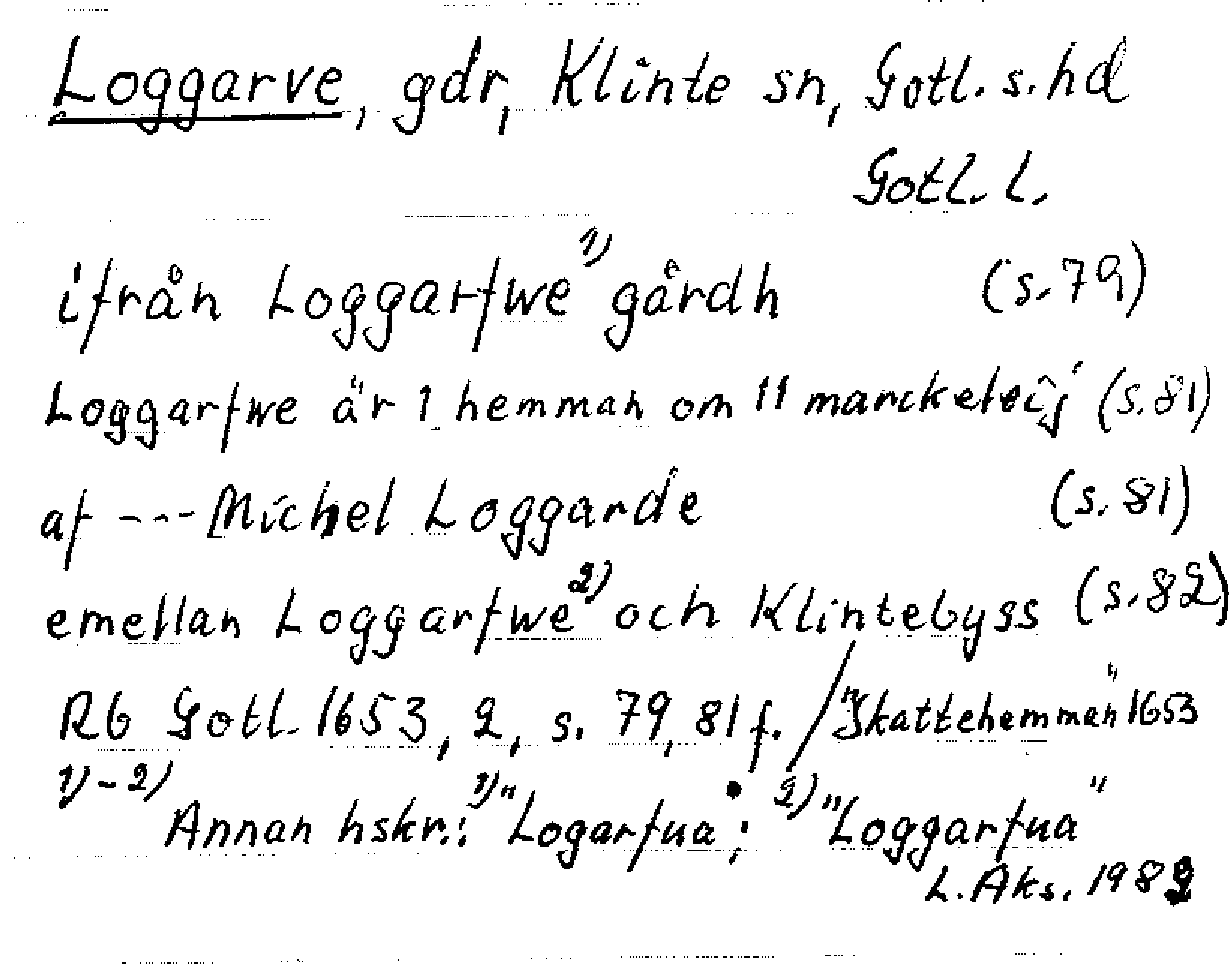 Loggarve, gdr, Klinte sn, Gotl. s. hd
Gotl. l.
ifrån Loggarfwe 1) gårdh (s. 79)
Loggarfwe är 1 hemman om 11 marckeleij (s. 81)
af --- Michel Loggarde (s. 81)
emellan Loggarfwe 2) och Klintebyss (s. 82)
Rb Gotl. 1653, 2, s. 79, 81 f. / "Skattehemman" 1653
1)-2) Annan hskr.: 1) "Logarfua; 2) "Loggarfua"
L. Aks. 1982